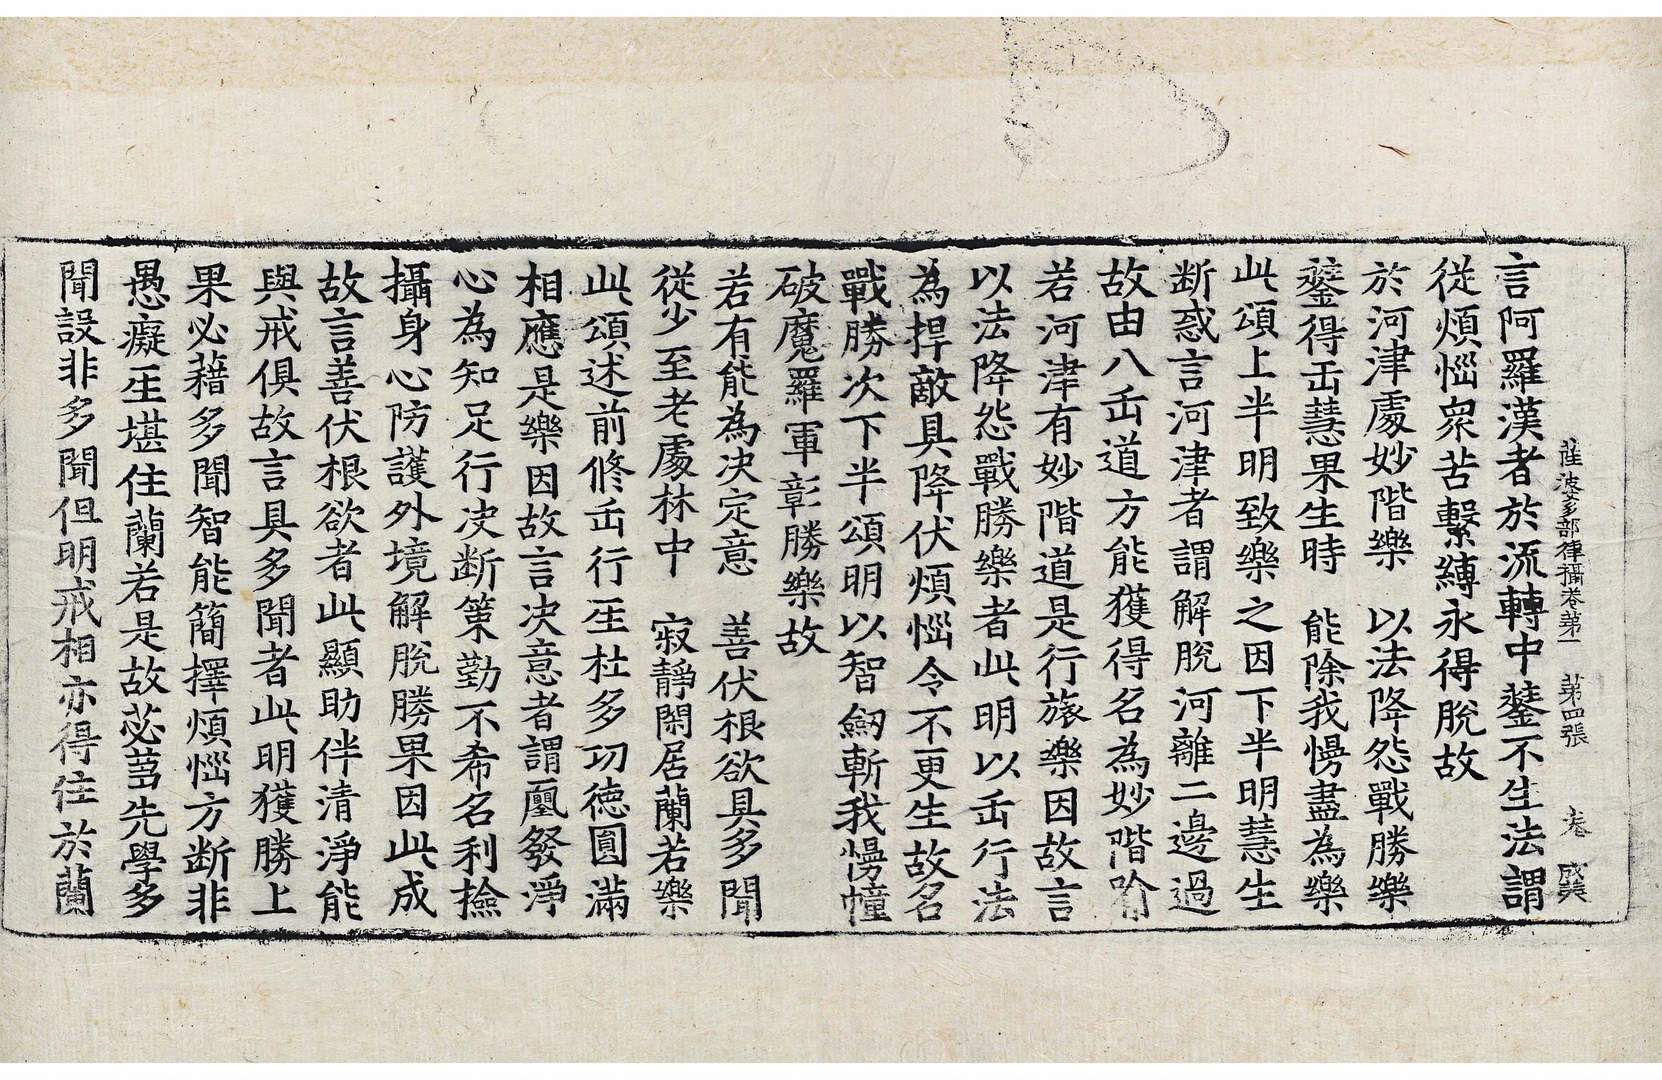 薩波多部律攝卷第一 第四張 卷 成美
言阿羅漢者於流轉中鏧不生法謂
從煩惱衆苦繫縛永得脫故
於河津處妙階樂 以法降怨戰勝樂
鏧得𠙽慧果生時 能除我慢盡為樂
此頌上半明致樂之因下半明慧生
断惑言河津者謂解脫河離二邊過
故由八𠙽道方能獲得名為妙階喻
若河津有妙階道是行旅樂因故言
以法降怨戰勝樂者此明以𠙽行法
為捍敵具降伏煩惱令不更生故名
戰勝次下半頌明以智劒斬我慢幢
破魔羅軍彰勝樂故
若有能為决定意 善伏根欲具多聞
從少至老處林中 寂靜閑居蘭若樂
此頌述前修𠙽行𤯔杜多功德圓滿
相應是樂因故言决意者謂𠪱發淨
心為知足行决断策勤不希名利撿
攝身心防護外境解脫勝果因此成
故言善伏根欲者此顯助伴清淨能
與戒俱故言具多聞者此明獲勝上
果必藉多聞智能簡擇煩惱方断非
愚癡𤯔堪住蘭若是故苾芻先學多
聞設非多聞但明戒相亦得住於蘭